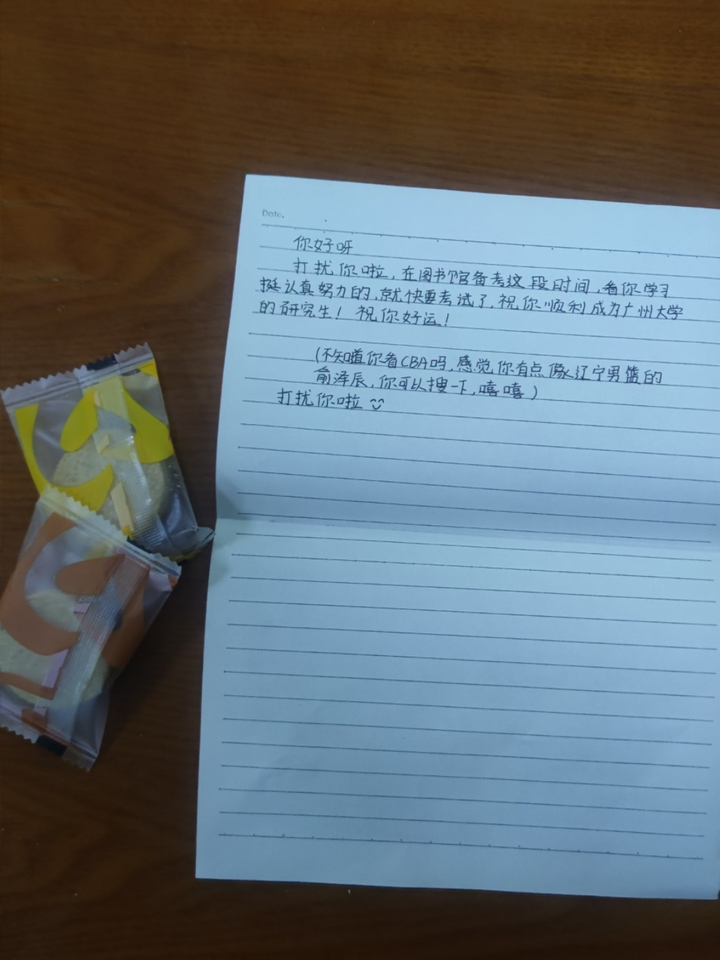 Date.
你好呀
打扰你啦，在图书馆备考这段时间，看你学习
挺认真努力的，就快要考试了，祝你顺利成为广州大学
的研究生！祝你好运！
(不知道你看CBA吗，感觉你有点像辽宁男篮的
俞泽辰，你可以搜一下，嘻嘻)
打扰你啦